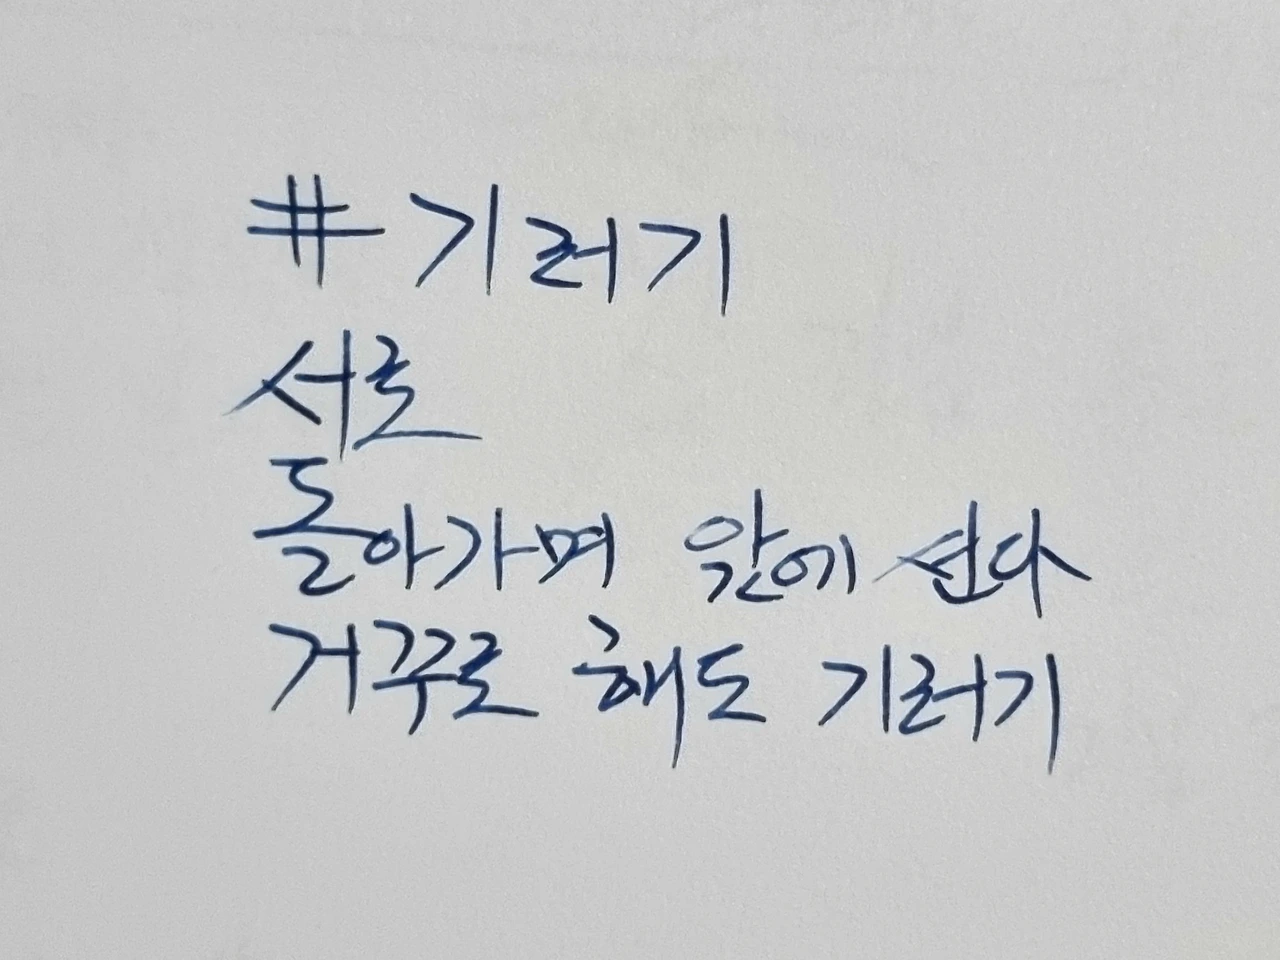 # 기러기
서로
돌아가며 앞에 선다
거꾸로 해도 기러기